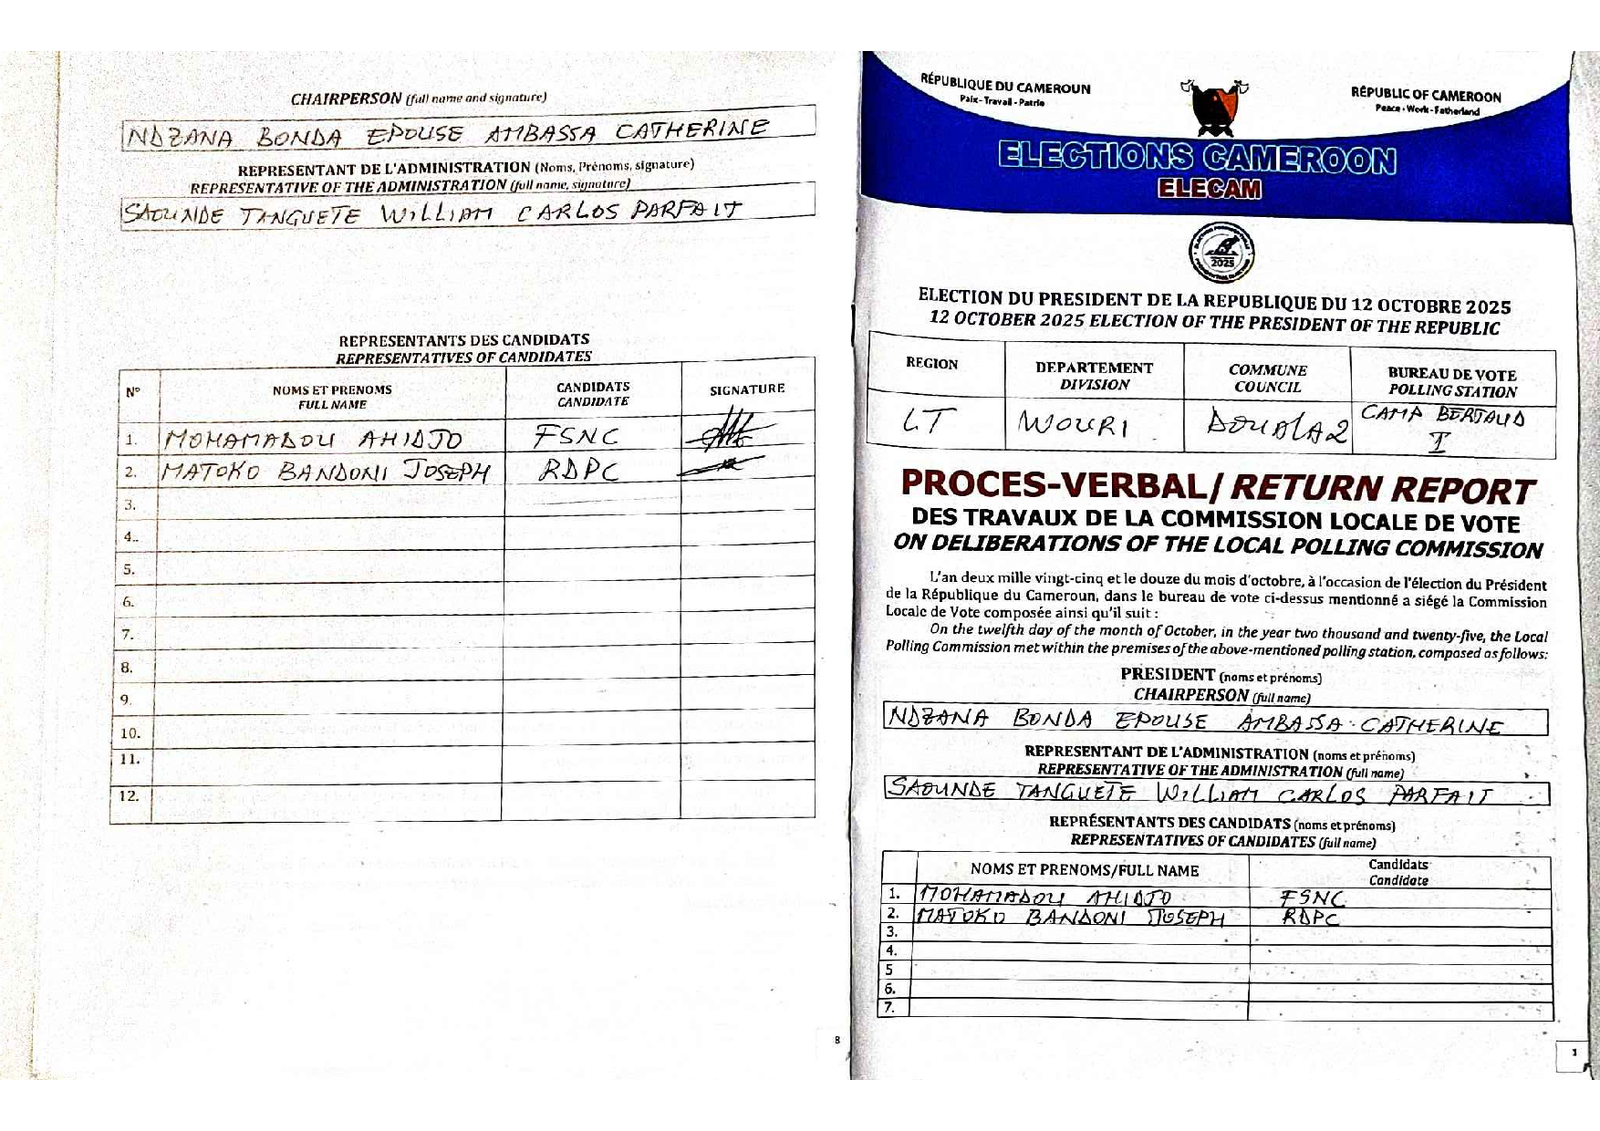 CHAIRPERSON (full name and signature)
NDZANA BONDA EPOUSE AMBASSA CATHERINE
REPRESENTANT DE L'ADMINISTRATION (Noms, Prénoms, signature)
REPRESENTATIVE OF THE ADMINISTRATION (full name, signature)
SAOUNDE TANGUETE WILLIAM CARLOS PARFAIT
REPRESENTANTS DES CANDIDATS
REPRESENTATIVES OF CANDIDATES
N° NOMS ET PRENOMS CANDIDATS SIGNATURE
FULL NAME CANDIDATE
1. MOHAMADOU AHIDJO FSNC
2. MATOKO BANDONI JOSEPH RDPC
3.
4..
5.
6.
7.
8.
9.
10.
11.
12.
8
RÉPUBLIQUE DU CAMEROUN
Paix - Travail - Patrie
RÉPUBLIC OF CAMEROON
Peace - Work - Fatherland
ELECTIONS CAMEROON
ELECAM
2025
ELECTION DU PRESIDENT DE LA REPUBLIQUE DU 12 OCTOBRE 2025
12 OCTOBER 2025 ELECTION OF THE PRESIDENT OF THE REPUBLIC
REGION DEPARTEMENT COMMUNE BUREAU DE VOTE
DIVISION COUNCIL POLLING STATION
LT WOURI DOUALA 2 CAMP BERTAUD
I
PROCES-VERBAL/ RETURN REPORT
DES TRAVAUX DE LA COMMISSION LOCALE DE VOTE
ON DELIBERATIONS OF THE LOCAL POLLING COMMISSION
L'an deux mille vingt-cinq et le douze du mois d'octobre, à l'occasion de l'élection du Président
de la République du Cameroun, dans le bureau de vote ci-dessus mentionné a siégé la Commission
Locale de Vote composée ainsi qu'il suit :
On the twelfth day of the month of October, in the year two thousand and twenty-five, the Local
Polling Commission met within the premises of the above-mentioned polling station, composed as follows:
PRESIDENT (noms et prénoms)
CHAIRPERSON (full name)
NDZANA BONDA EPOUSE AMBASSA CATHERINE
REPRESENTANT DE L'ADMINISTRATION (noms et prénoms)
REPRESENTATIVE OF THE ADMINISTRATION (full name)
SAOUNDE TANGUETE WILLIAM CARLOS PARFAIT
REPRÉSENTANTS DES CANDIDATS (noms et prénoms)
REPRESENTATIVES OF CANDIDATES (full name)
NOMS ET PRENOMS/FULL NAME Candidats
Candidate
1. MOHAMADOU AHIDJO FSNC
2. MATOKO BANDONI JOSEPH RDPC
3.
4.
5
6.
7.
1